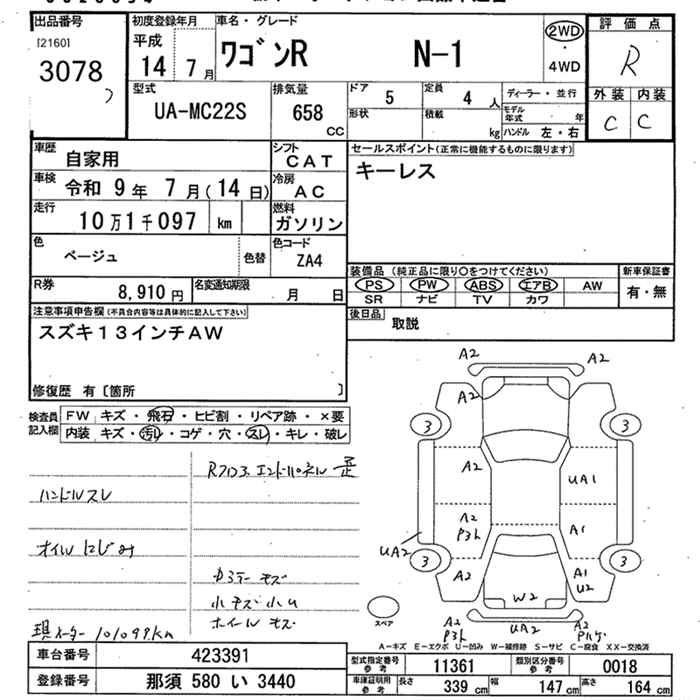 出品番号
[2160]
3078
初度登録年月
平成
14年 7月
車名・グレード
ワゴンR N-1
2WD
4WD
評価点
R
外装 内装
C C
型式
UA-MC22S
排気量
658
CC
ドア
5
定員
4人
形状
積載
kg
ディーラー・並行
モデル年式 年
ハンドル 左・右
車歴
自家用
シフト
CAT
車検
令和 9年 7月(14日)
冷房
AC
走行
10万1千097 km
燃料
ガソリン
色
ベージュ
色替
色コード
ZA4
R券
8,910円
名変通知期限
月 日
セールスポイント(正常に機能するものに限ります)
キーレス
装備品 (純正品に限り○をつけてください)
PS PW ABS エアB AW
SR ナビ TV カワ
新車保証書
有・無
後日品
取説
注意事項申告欄(不具合内容等は具体的に記入して下さい)
スズキ13インチAW
修復歴 有〔箇所 〕
検査員記入欄
FW キズ・飛石・ヒビ割・リペア跡・×要
内装 キズ・汚レ・コゲ・穴・スレ・キレ・破レ
ハンドルスレ
オイルにじみ
現メーター 101099km
エンドパネル 歪
小キズ小凹
ホイールキズ
A2 A2
A2
3 3
A2
UA1
A2
P3ト
A1
UA2
3 3
A2
A1
U2
W2
スペア
A2
P3ト
UA2
A2
Pハゲ
A-キズ E-エクボ U-凹み W-補修跡 S-サビ C-腐食 XX-交換済
車台番号
423391
登録番号
那須 580 い 3440
型式指定番号
参考
11361
類別区分番号
参考
0018
車庫証明用
参考
長さ 339 cm 幅 147 cm 高さ 164 cm